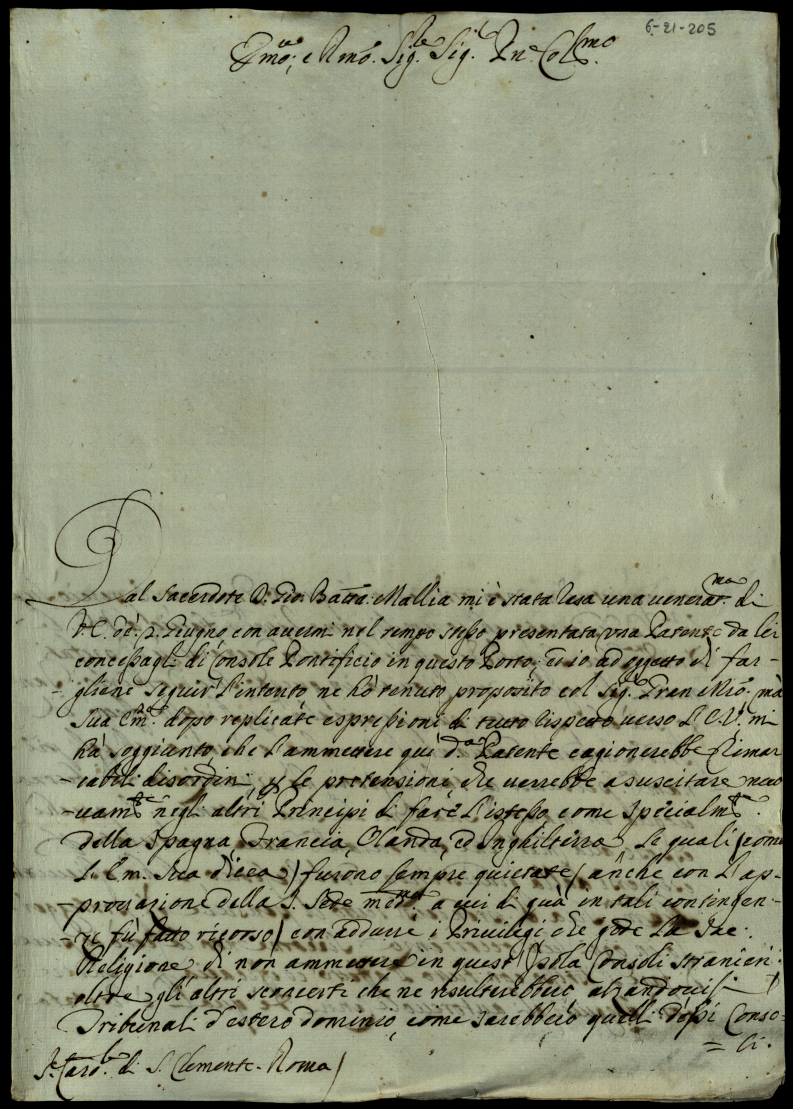 6-21-205
Emo., e Rmo. Sig.re Sig.r Pn. Colmo.
Dal Sacerdote D. Gio. Batta. Mallia mi è stata resa una venerat.ma di
V.E. de' 2. Giugno con avermi nel tempo stesso presentata una Patente da lei
concessagli di Console Pontificio in questo Porto; ed io ad oggetto di far-
-gliene seguir l'intento ne hò tenuto proposito col Sig.r Gran Mro. mà
Sua Em.a dopo replicate espressioni di tutto rispetto verso l'E.V. mi
hà soggiunto che l'ammettere quì d.a Patente cagionerebbe rimar
-cabili disordini p le pretensione che verrebbe a suscitare nuo
-vam.te negli altri Principi di fare l'istesso, come specialm.te
della Spagna, Francia, Olanda, ed Inghilterra. Le quali (come
S. Em. Sua dice) furono sempre quietate (anche con l'ap-
-provazione della S. Sede med.ma a cui di quà in tali contingen-
-ze fù fatto ricorso) con addurre i Privilegi che gode la Sac.
Religione di non ammettere in quest'Isola Consoli stranieri:
oltre gli altri sconcerti che ne risulterebbero alzandovisi
Tribunali d'estero dominio, come sarebbero quelli d'essi Conso-
= li.
S.r Card.le di S. Clemente. Roma)